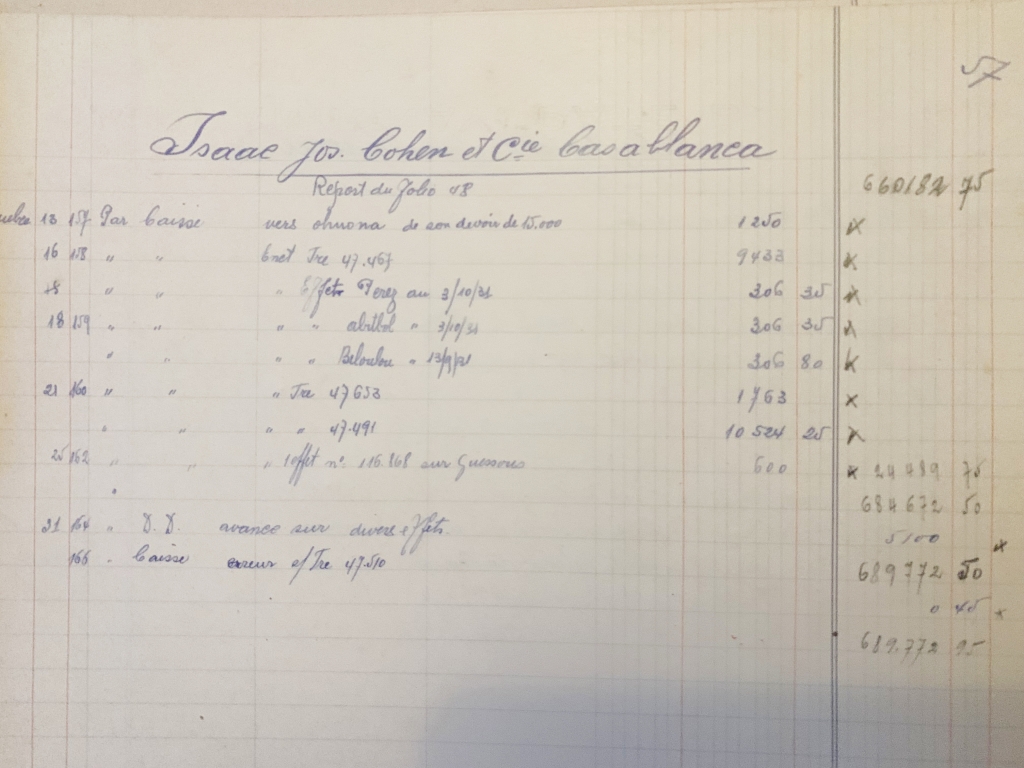 57
Isaac Jos. Cohen et Cie Casablanca
Report du folio 48 660182 75
13 157 Par Caisse vers ohnona de son devoir de 15.000 1250 x
16 158 " " Enct Tre 47.467 9433 x
18 " " " Effets Perez au 3/10/31 306 35 x
18 159 " " " " abitbol " 3/10/31 306 35 x
" " " " Beloulou " 13/9/31 306 80 x
21 160 " " " Tre 47653 1763 x
" " " " 47.491 10524 25 x
25 162 " " " 1 effet no. 116.868 sur Guessous 600 x 24489 75
" 684672 50
31 164 " D.D. avance sur divers effets 5100 x
166 " Caisse erreur s/Tre 47.510 689772 50
0 45 x
689.772 95